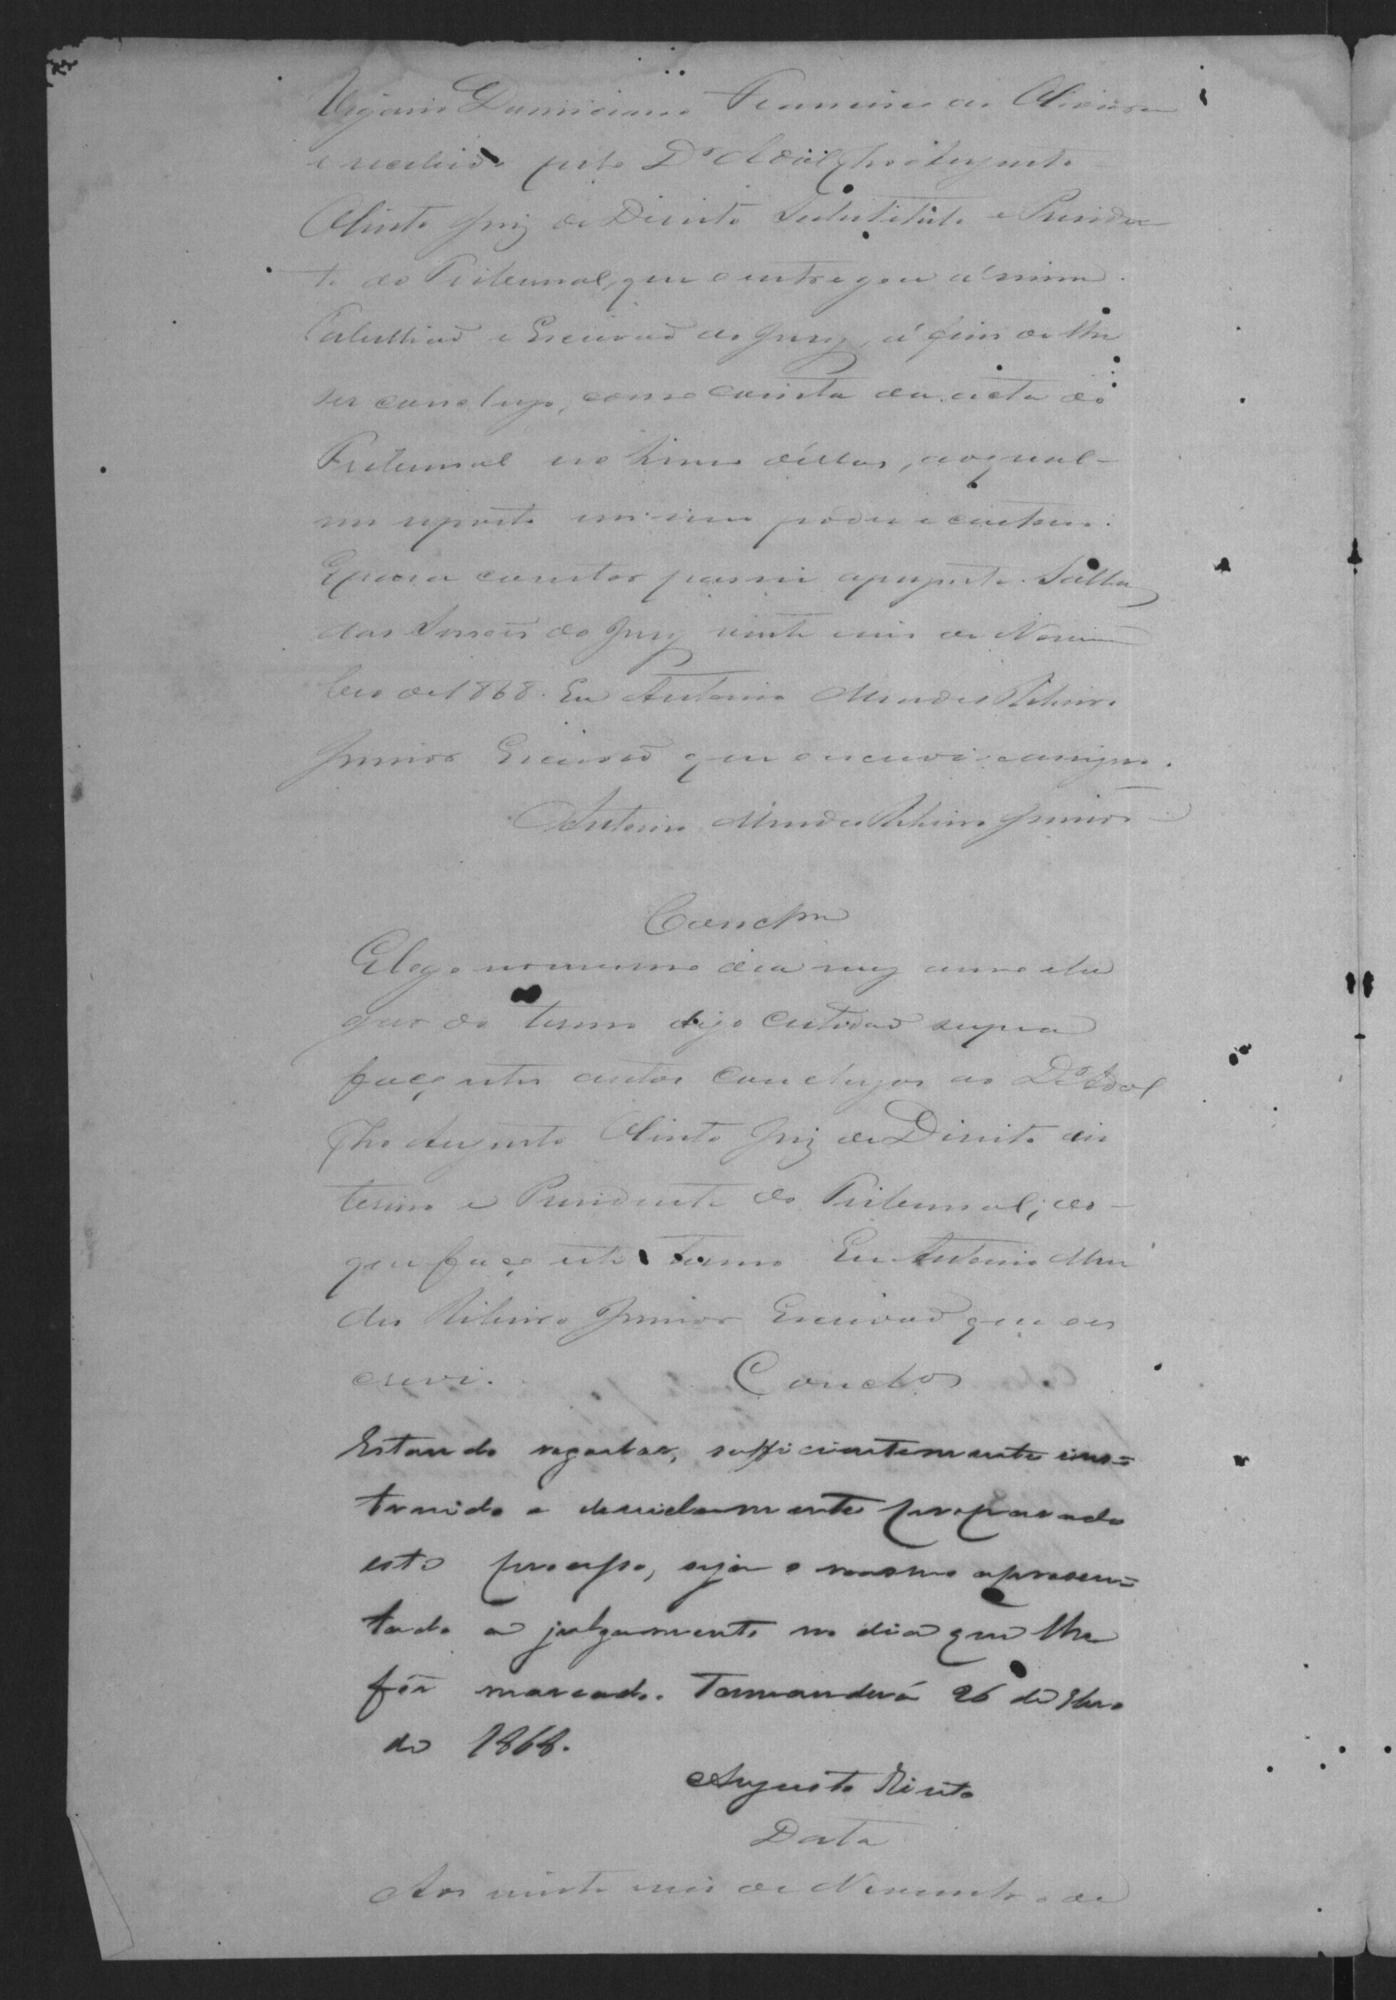 Francisco de Oliveira
e recebido pelo Dr. Adolpho Augusto
Olinto Juiz de Direito Substituto e Presiden-
te do Tribunal, que o entregou á mim
Tabelliaõ e Escrivaõ do Jury, á fim de lhe
ser concluso, como consta da acta do
Tribunal no livro dellas, ao qual
me reporto em meu poder e cartorio.
E para constar passei a presente. Salla
das Sessões do Jury vinte seis de Novem
bro de 1868. Eu Antonio Mendes Ribeiro
Junior Escrivaõ que o escrevi e assigno.
Antonio Mendes Ribeiro Junior
Conclm
E logo no mesmo dia mez anno e lu
gar do termo digo certidaõ supra
faço estes autos conclusos ao Dr. Adol
pho Augusto Olinto Juiz de Direito in
terino e Presidente do Tribunal; do
que faço este termo Eu Antonio Men
des Ribeiro Junior Escrivaõ que es
crevi. Conclos
Estando regular, sufficientemente ins=
truido e devidamente preparado
este processo, seja o mesmo apresen=
tado a julgamento no dia que lhe
fôr marcado. Tamanduá 26 de 9bro
de 1868.
Augusto Olinto
Data
Aos vinte seis de Novembro de